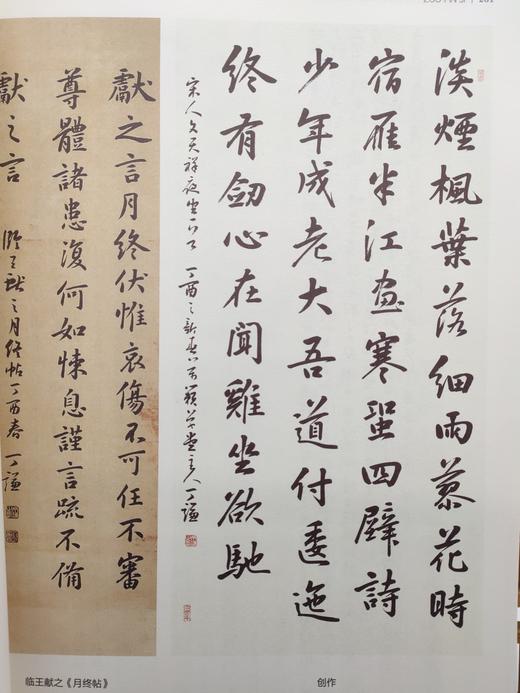 淡煙楓葉落細雨蓼花時
宿雁半江畫寒蛩四壁詩
少年成老大吾道付逶迤
終有劒心在聞雞坐欲馳
宋人文天祥夜坐 丁酉之新春 草堂主人丁謙
獻之言月終伏惟哀傷不可任不審
尊體諸患復何如悚息謹言疏不備
獻之言 臨王獻之月終帖丁酉春 丁謙
临王献之《月终帖》
创作